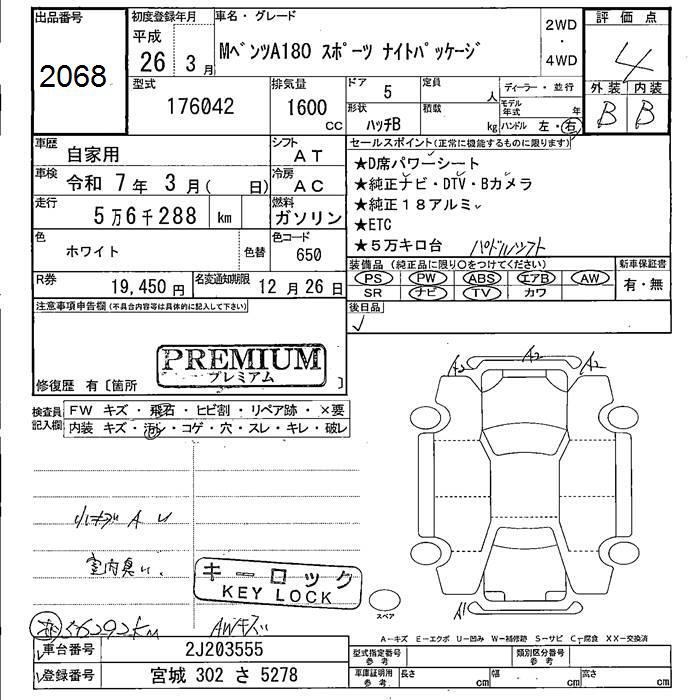 出品番号
2068
初度登録年月
平成
26 3月
車名・グレード
MベンツA180 スポーツ ナイトパッケージ
2WD
・
4WD
評価点
4
外装 内装
B B
型式
176042
排気量
1600
CC
ドア 5
定員 人
形状
ハッチB
積載 kg
ディーラー・並行
モデル年式 年
ハンドル 左・右
車歴 自家用
シフト AT
車検 令和 7年 3月( 日)
冷房 AC
走行 5万6千288 km
燃料 ガソリン
色 ホワイト
色替
色コード
650
R券 19,450円
名変通知期限 12月26日
セールスポイント(正常に機能するものに限ります)
★D席パワーシート
★純正ナビ・DTV・Bカメラ
★純正18アルミ
★ETC
★5万キロ台 パドルシフト
装備品(純正品に限り○をつけてください)
PS PW ABS エアB AW
SR ナビ TV カワ
新車保証書
有・無
後日品
注意事項申告欄(不具合内容等は具体的に記入して下さい)
PREMIUM
プレミアム
修復歴 有〔箇所 〕
検査員記入欄
FW キズ・飛石・ヒビ割・リペア跡・×要
内装 キズ・汚レ・コゲ・穴・スレ・キレ・破レ
A2 A2 A2
室内臭い.
キーロック
KEY LOCK
56292km
AWキズ
A1
スペア
A←キズ E−エクボ U−凹み W−補修跡 S−サビ C−腐食 XX−交換済
車台番号 2J203555
登録番号 宮城 302 さ 5278
型式指定番号
参考
類別区分番号
参考
車庫証明用
参考
長さ cm 幅 cm 高さ cm